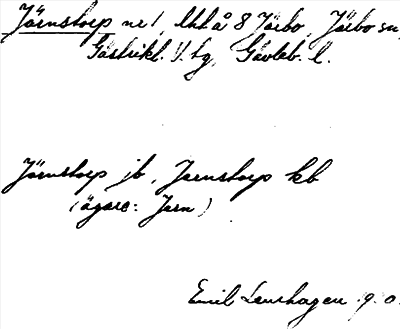 Järnstorp nr 1, Ukkå 8, Järbo, Järbo sn,
Gästrikl. V. tg, Gävleb. l.
Järnstorp jb, Jarnstorp kb
(ägare: Jarn)
Emil Lenshagen 190